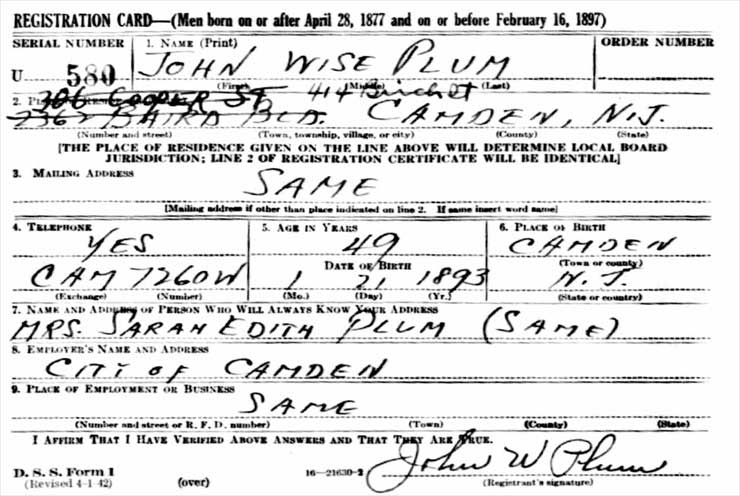 REGISTRATION CARD—(Men born on or after April 28, 1877 and on or before February 16, 1897)
SERIAL NUMBER 1. NAME (Print) ORDER NUMBER
U 580 JOHN WISE PLUM
(First) (Middle) (Last)
306 COOPER ST 414
2. BAIRD BLD. CAMDEN, N.J.
(Number and street) (Town, township, village, or city) (County) (State)
[THE PLACE OF RESIDENCE GIVEN ON THE LINE ABOVE WILL DETERMINE LOCAL BOARD
JURISDICTION; LINE 2 OF REGISTRATION CERTIFICATE WILL BE IDENTICAL]
3. MAILING ADDRESS
SAME
[Mailing address if other than place indicated on line 2. If same insert word same]
4. TELEPHONE 5. AGE IN YEARS 6. PLACE OF BIRTH
YES 49 CAMDEN
DATE OF BIRTH (Town or county)
CAM 7260W 1 21 1893 N.J.
(Exchange) (Number) (Mo.) (Day) (Yr.) (State or country)
7. NAME AND ADDRESS OF PERSON WHO WILL ALWAYS KNOW YOUR ADDRESS
MRS. SARAH EDITH PLUM (SAME)
8. EMPLOYER'S NAME AND ADDRESS
CITY OF CAMDEN
9. PLACE OF EMPLOYMENT OR BUSINESS
SAME
(Number and street or R. F. D. number) (Town) (County) (State)
I AFFIRM THAT I HAVE VERIFIED ABOVE ANSWERS AND THAT THEY ARE TRUE.
John W Plum
D. S. S. Form 1
(Revised 4-1-42) (over) 16—21630-2 (Registrant's signature)